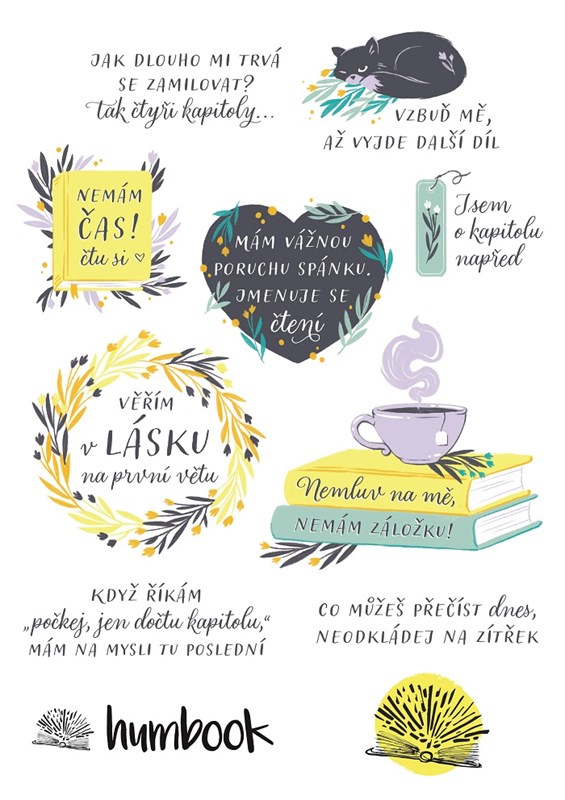 JAK DLOUHO MI TRVÁ
SE ZAMILOVAT?
tak čtyři kapitoly...
VZBUĎ MĚ,
AŽ VYJDE DALŠÍ DÍL
NEMÁM
ČAS!
čtu si
MÁM VÁŽNOU
PORUCHU SPÁNKU.
JMENUJE SE
čtení
Jsem
o kapitolu
napřed
VĚŘÍM
v LÁSKU
na první větu
Nemluv na mě,
NEMÁM ZÁLOŽKU!
KDYŽ ŘÍKÁM
„počkej, jen dočtu kapitolu,“
MÁM NA MYSLI TU POSLEDNÍ
CO MŮŽEŠ PŘEČÍST dnes,
NEODKLÁDEJ NA ZÍTŘEK
humbook